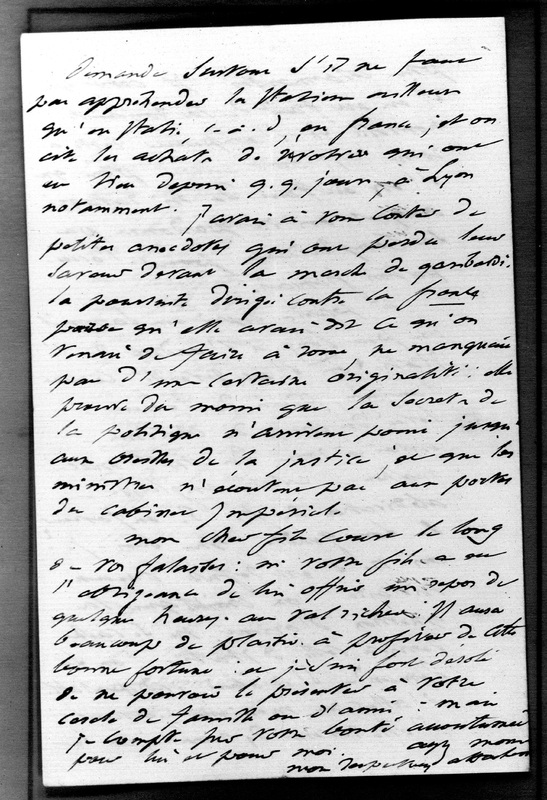 demande surtout s'il ne faut
pas appréhender la station ailleurs
qu'en Italie, c-à-d, en france ; et on
cite les achats de qui ont
eu lieu depuis q.q. jours, à Lyon
notamment. J'avais à vous conter de
petites anecdotes qui ont perdu leur
saveur devant la marche de garibaldi.
la poursuite dirigée contre la france
qu'elle avait dit ce qu'on
venait de faire à rome, ne manquait
pas d'une certaine originalité : elle
prouve du moins que les secrets de
la politique n'arrivent point jusqu'
aux oreilles de la justice, et que les
ministres n'écoutent pas aux portes
du cabinet Impérial.
mon cher fils court le long
de vos falaises : si votre fils a eu
l'obligeance de lui offrir un repos de
quelques heures au val richer, Il aura
beaucoup de plaisir à profiter de cette
bonne fortune : et je suis fort désolé
de ne pouvoir le présenter à votre
cercle de famille ou d'amis : mais
je compte sur votre bonté accoutumée
pour lui et pour moi.
mon respectueux attachement